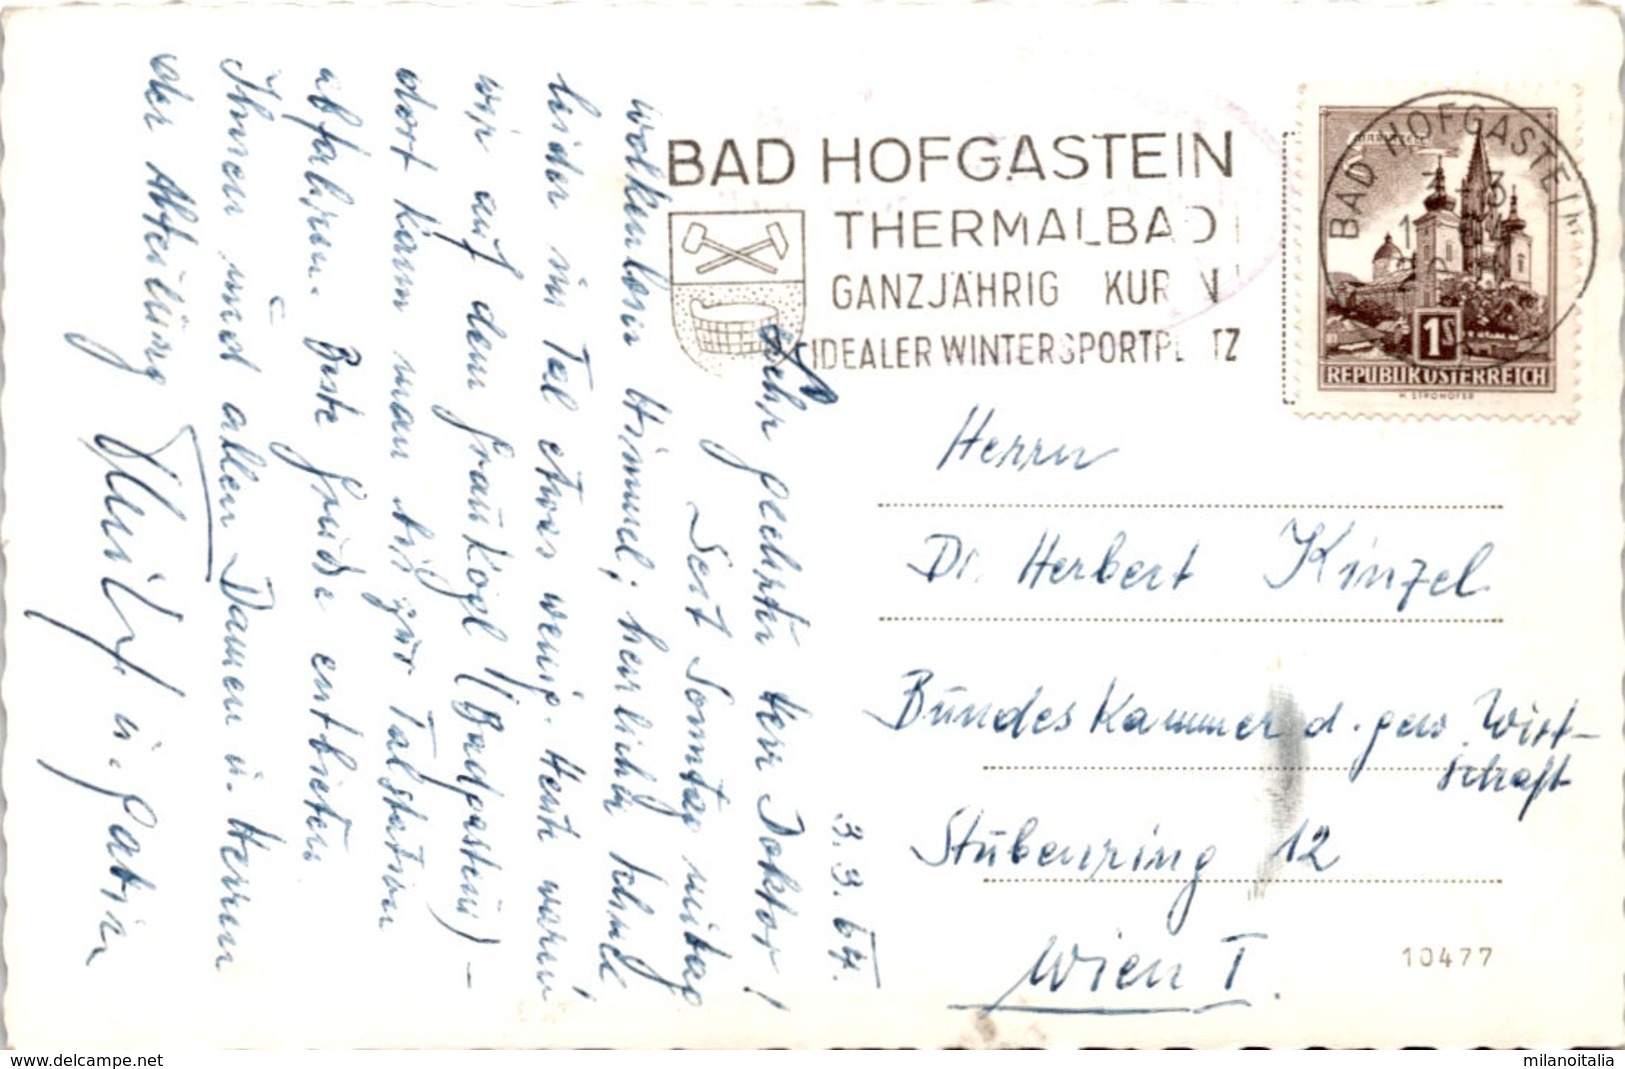 BAD HOFGASTEIN
THERMALBAD
GANZJÄHRIG KUR
IDEALER WINTERSPORTPL TZ
BAD HOFGASTEIN
MARIAZELL
1S
REPUBLIK ÖSTERREICH
H. STROHOFER
3.3.64.
Sehr geehrter Herr Doktor!
Seit Sonntag mittag
wolkenloser Himmel; herrlicher Schnee
leider im Tal etwas wenig. Heute waren
wir auf dem Graukogl (Badgastein) –
dort kann man bis zur Talstation
abfahren. Beste Grüße entbieten
Ihnen und allen Damen u. Herren
der Abteilung
u. Gattin
Herrn
Dr. Herbert Kinzel
Bundeskammer d. gew. Wirt-
schaft
Stubenring 12
Wien I.
10477
www.delcampe.net
milanoitalia